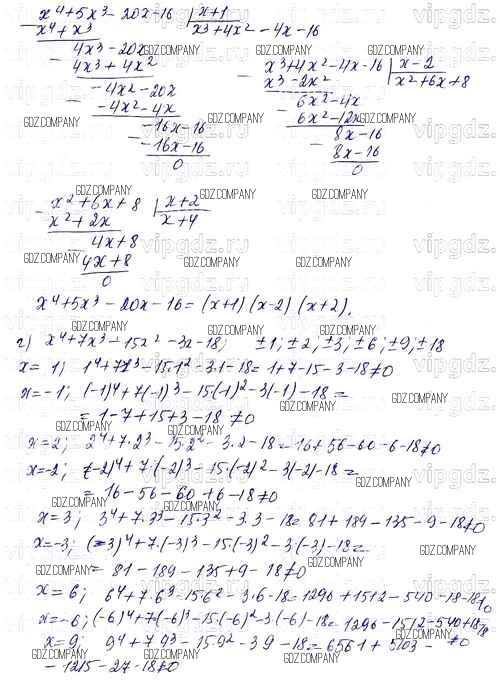 x⁴+5x³-20x-16 | x+1
x⁴+x³ x³+4x²-4x-16
4x³-20x
4x³+4x²
-4x²-20x
-4x²-4x
-16x-16
-16x-16
0
x³+4x²-4x-16 | x-2
x³-2x² x²+6x+8
6x²-4x
6x²-12x
8x-16
8x-16
0
x²+6x+8 | x+2
x²+2x x+4
4x+8
4x+8
0
x⁴+5x³-20x-16=(x+1)(x-2)(x+2).
г) x⁴+7x³-15x²-3x-18; ±1; ±2; ±3; ±6; ±9; ±18
x=1; 1⁴+7·1³-15·1²-3·1-18=1+7-15-3-18≠0
x=-1; (-1)⁴+7(-1)³-15(-1)²-3(-1)-18=
=1-7+15+3-18≠0
x=2; 2⁴+7·2³-15·2²-3·2-18=16+56-60-6-18≠0
x=-2; (-2)⁴+7·(-2)³-15·(-2)²-3(-2)-18=
=16-56-60+6-18≠0
x=3; 3⁴+7·3³-15·3²-3·3-18=81+189-135-9-18≠0
x=-3; (-3)⁴+7·(-3)³-15·(-3)²-3·(-3)-18=
=81-189-135+9-18≠0
x=6; 6⁴+7·6³-15·6²-3·6-18=1296+1512-540-18-18≠0
x=-6; (-6)⁴+7(-6)³-15·(-6)²-3·(-6)-18=1296-1512-540+18-18≠0
x=9; 9⁴+7·9³-15·9²-3·9-18=6561+5103-
-1215-27-18≠0